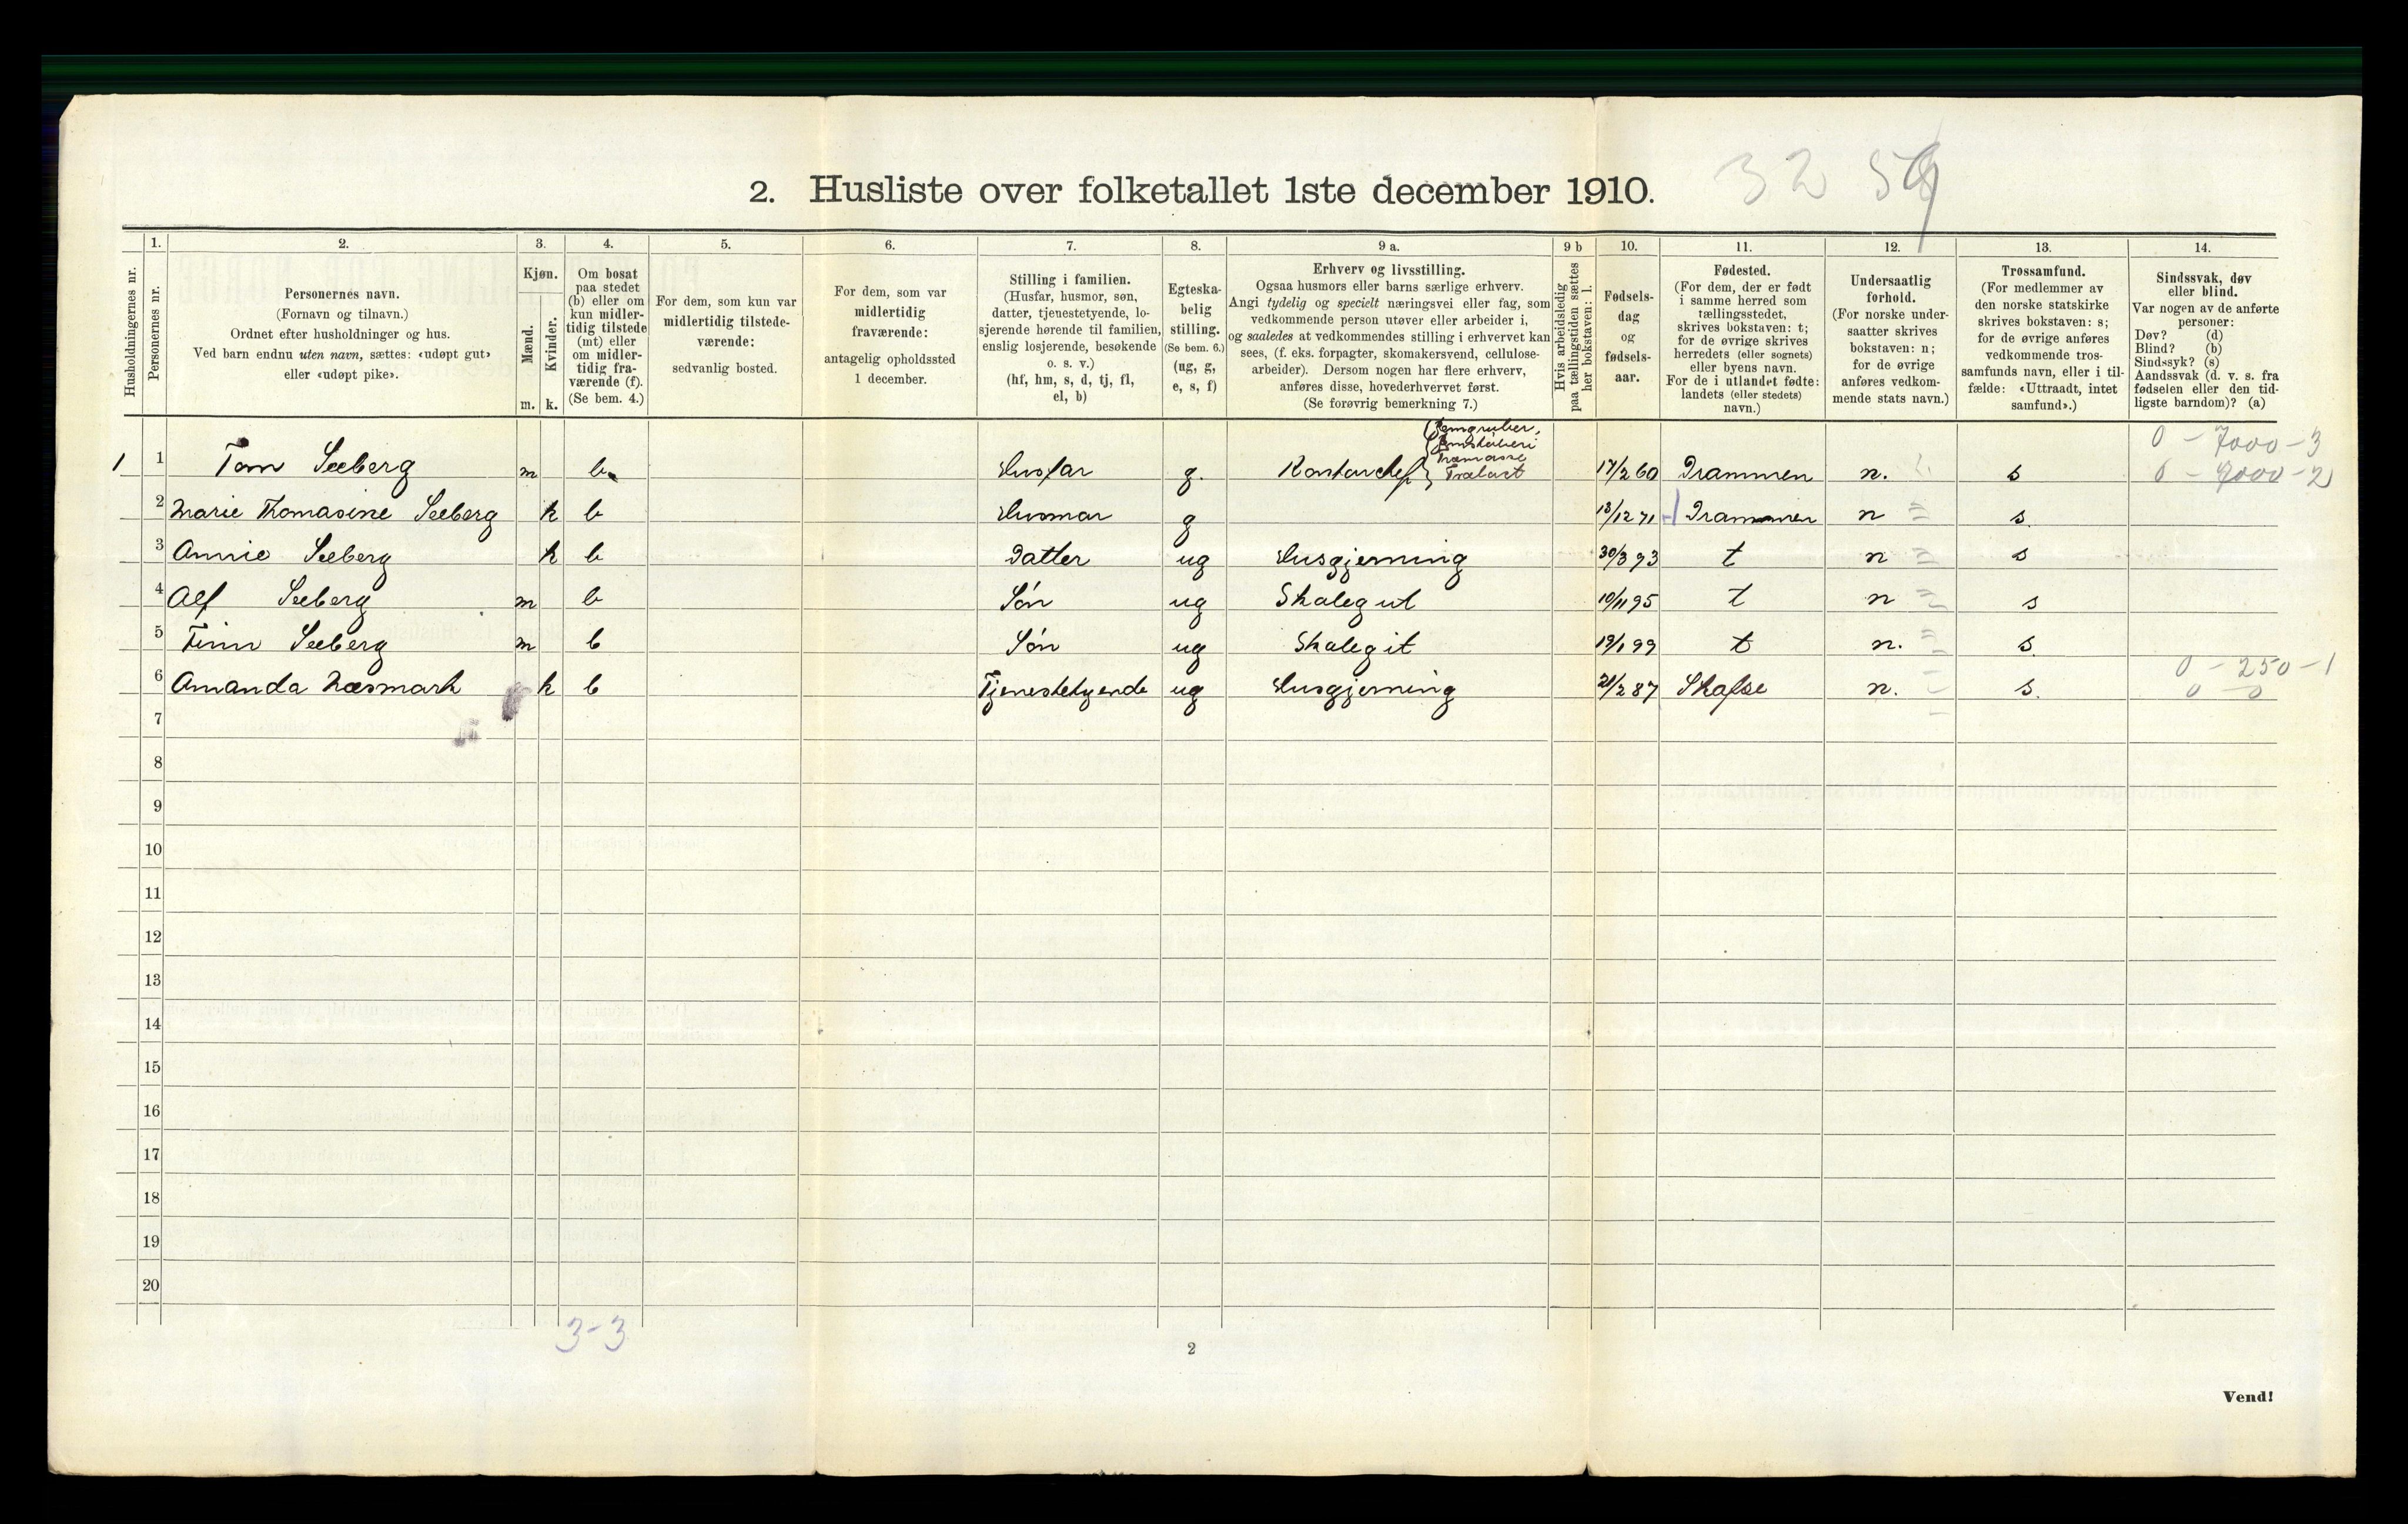 2. Husliste over folketallet 1ste december 1910.
32 59
Husholdningernes nr.
1.
Personernes nr.
2.
Personernes navn.
(Fornavn og tilnavn.)
Ordnet efter husholdninger og hus.
Ved barn endnu uten navn, sættes: «udøpt gut»
eller «udøpt pike».
3.
Kjøn.
Mænd.
Kvinder.
m. k.
4.
Om bosat
paa stedet
(b) eller om
kun midler-
tidig tilstede
(mt) eller
om midler-
tidig fra-
værende (f).
(Se bem. 4.)
5.
For dem, som kun var
midlertidig tilstede-
værende:
sedvanlig bosted.
6.
For dem, som var
midlertidig
fraværende:
antagelig opholdssted
1 december.
7.
Stilling i familien.
(Husfar, husmor, søn,
datter, tjenestetyende, lo-
sjerende hørende til familien,
enslig losjerende, besøkende
o. s. v.)
(hf, hm, s, d, tj, fl,
el, b)
8.
Egteska-
belig
stilling.
(Se bem. 6.)
(ug, g,
e, s, f)
9 a.
Erhverv og livsstilling.
Ogsaa husmors eller barns særlige erhverv.
Angi tydelig og specielt næringsvei eller fag, som
vedkommende person utøver eller arbeider i,
og saaledes at vedkommendes stilling i erhvervet kan
sees, (f. eks. forpagter, skomakersvend, cellulose-
arbeider). Dersom nogen har flere erhverv,
anføres disse, hovederhvervet først.
(Se forøvrig bemerkning 7.)
9 b
Hvis arbeidsledig
paa tællingstiden sættes
her bokstaven: l.
10.
Fødsels-
dag
og
fødsels-
aar.
11.
Fødested.
(For dem, der er født
i samme herred som
tællingsstedet,
skrives bokstaven: t;
for de øvrige skrives
herredets (eller sognets)
eller byens navn.
For de i utlandet fødte:
landets (eller stedets)
navn.)
12.
Undersaatlig
forhold.
(For norske under-
saatter skrives
bokstaven: n;
for de øvrige
anføres vedkom-
mende stats navn.)
13.
Trossamfund.
(For medlemmer av
den norske statskirke
skrives bokstaven: s;
for de øvrige anføres
vedkommende tros-
samfunds navn, eller i til-
fælde: «Uttraadt, intet
samfund».)
14.
Sindssvak, døv
eller blind.
Var nogen av de anførte
personer:
Døv? (d)
Blind? (b)
Sindssyk? (s)
Aandssvak (d. v. s. fra
fødselen eller den tid-
ligste barndom)? (a)
0 - 7000 - 3
1 1 Tom Seeberg m b. Husfar g. Kontorchef Trælast 17/2 60 Drammen n. s 0 - 7000 - 2
2 Marie Thomasine Seeberg k b Husmor g 13/12 71 Drammen n s
3 Annie Seeberg k b Datter ug Husgjerning 30/3 93 t n s
4 Alf Seeberg m b Søn ug Skolegut 10/11 95 t n s
5 Finn Seeberg m b Søn ug Skolegut 19/1 99 t n. s.
0 - 250 - 1
6 Amanda Næsmark k b Tjenestetyende ug Husgjerning 21/2 87 Skafse n. s. 0 0
7
8
9
10
11
12
13
14
15
16
17
18
19
20
3-3
2
Vend!